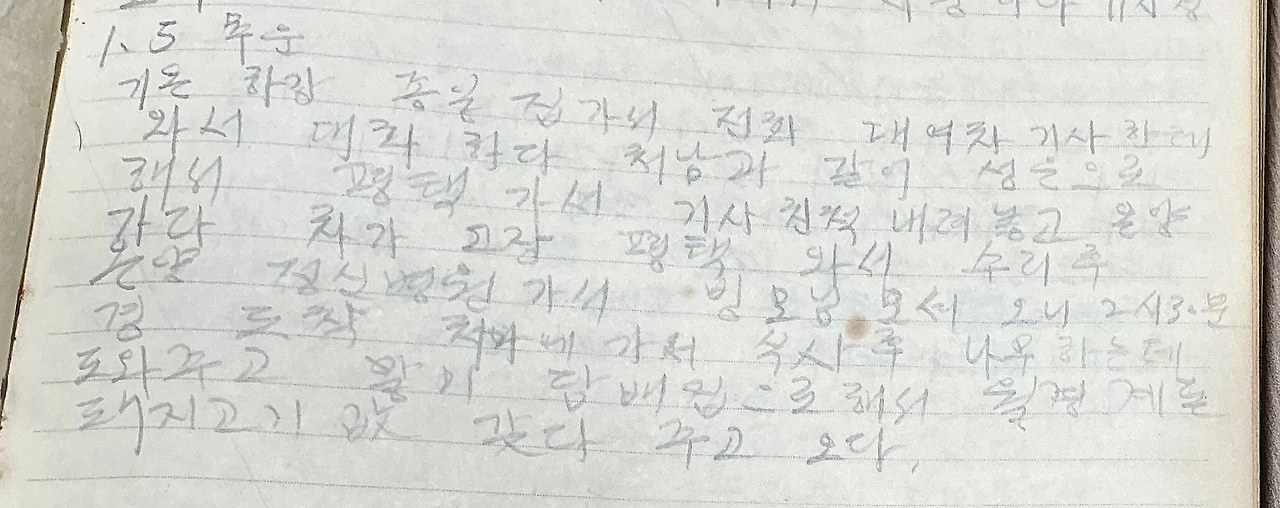 1.5 목운
기온 하강 종일 집가서 전화 대여차 기사 한테
와서 대화 하다 처남과 같이 성은으로
해서 평택 가서 기사 친척 내려놓고 온양
가다 차가 고장 평택 와서 수리 후
온양 정신병원 가서 빙모님 모셔 오니 2시30분
경 도착 처가에 가서 식사 후 나무 하는데
도와주고 왕이 담배집으로 해서 월경 계론
돼지고기 값 갖다 주고 오다.